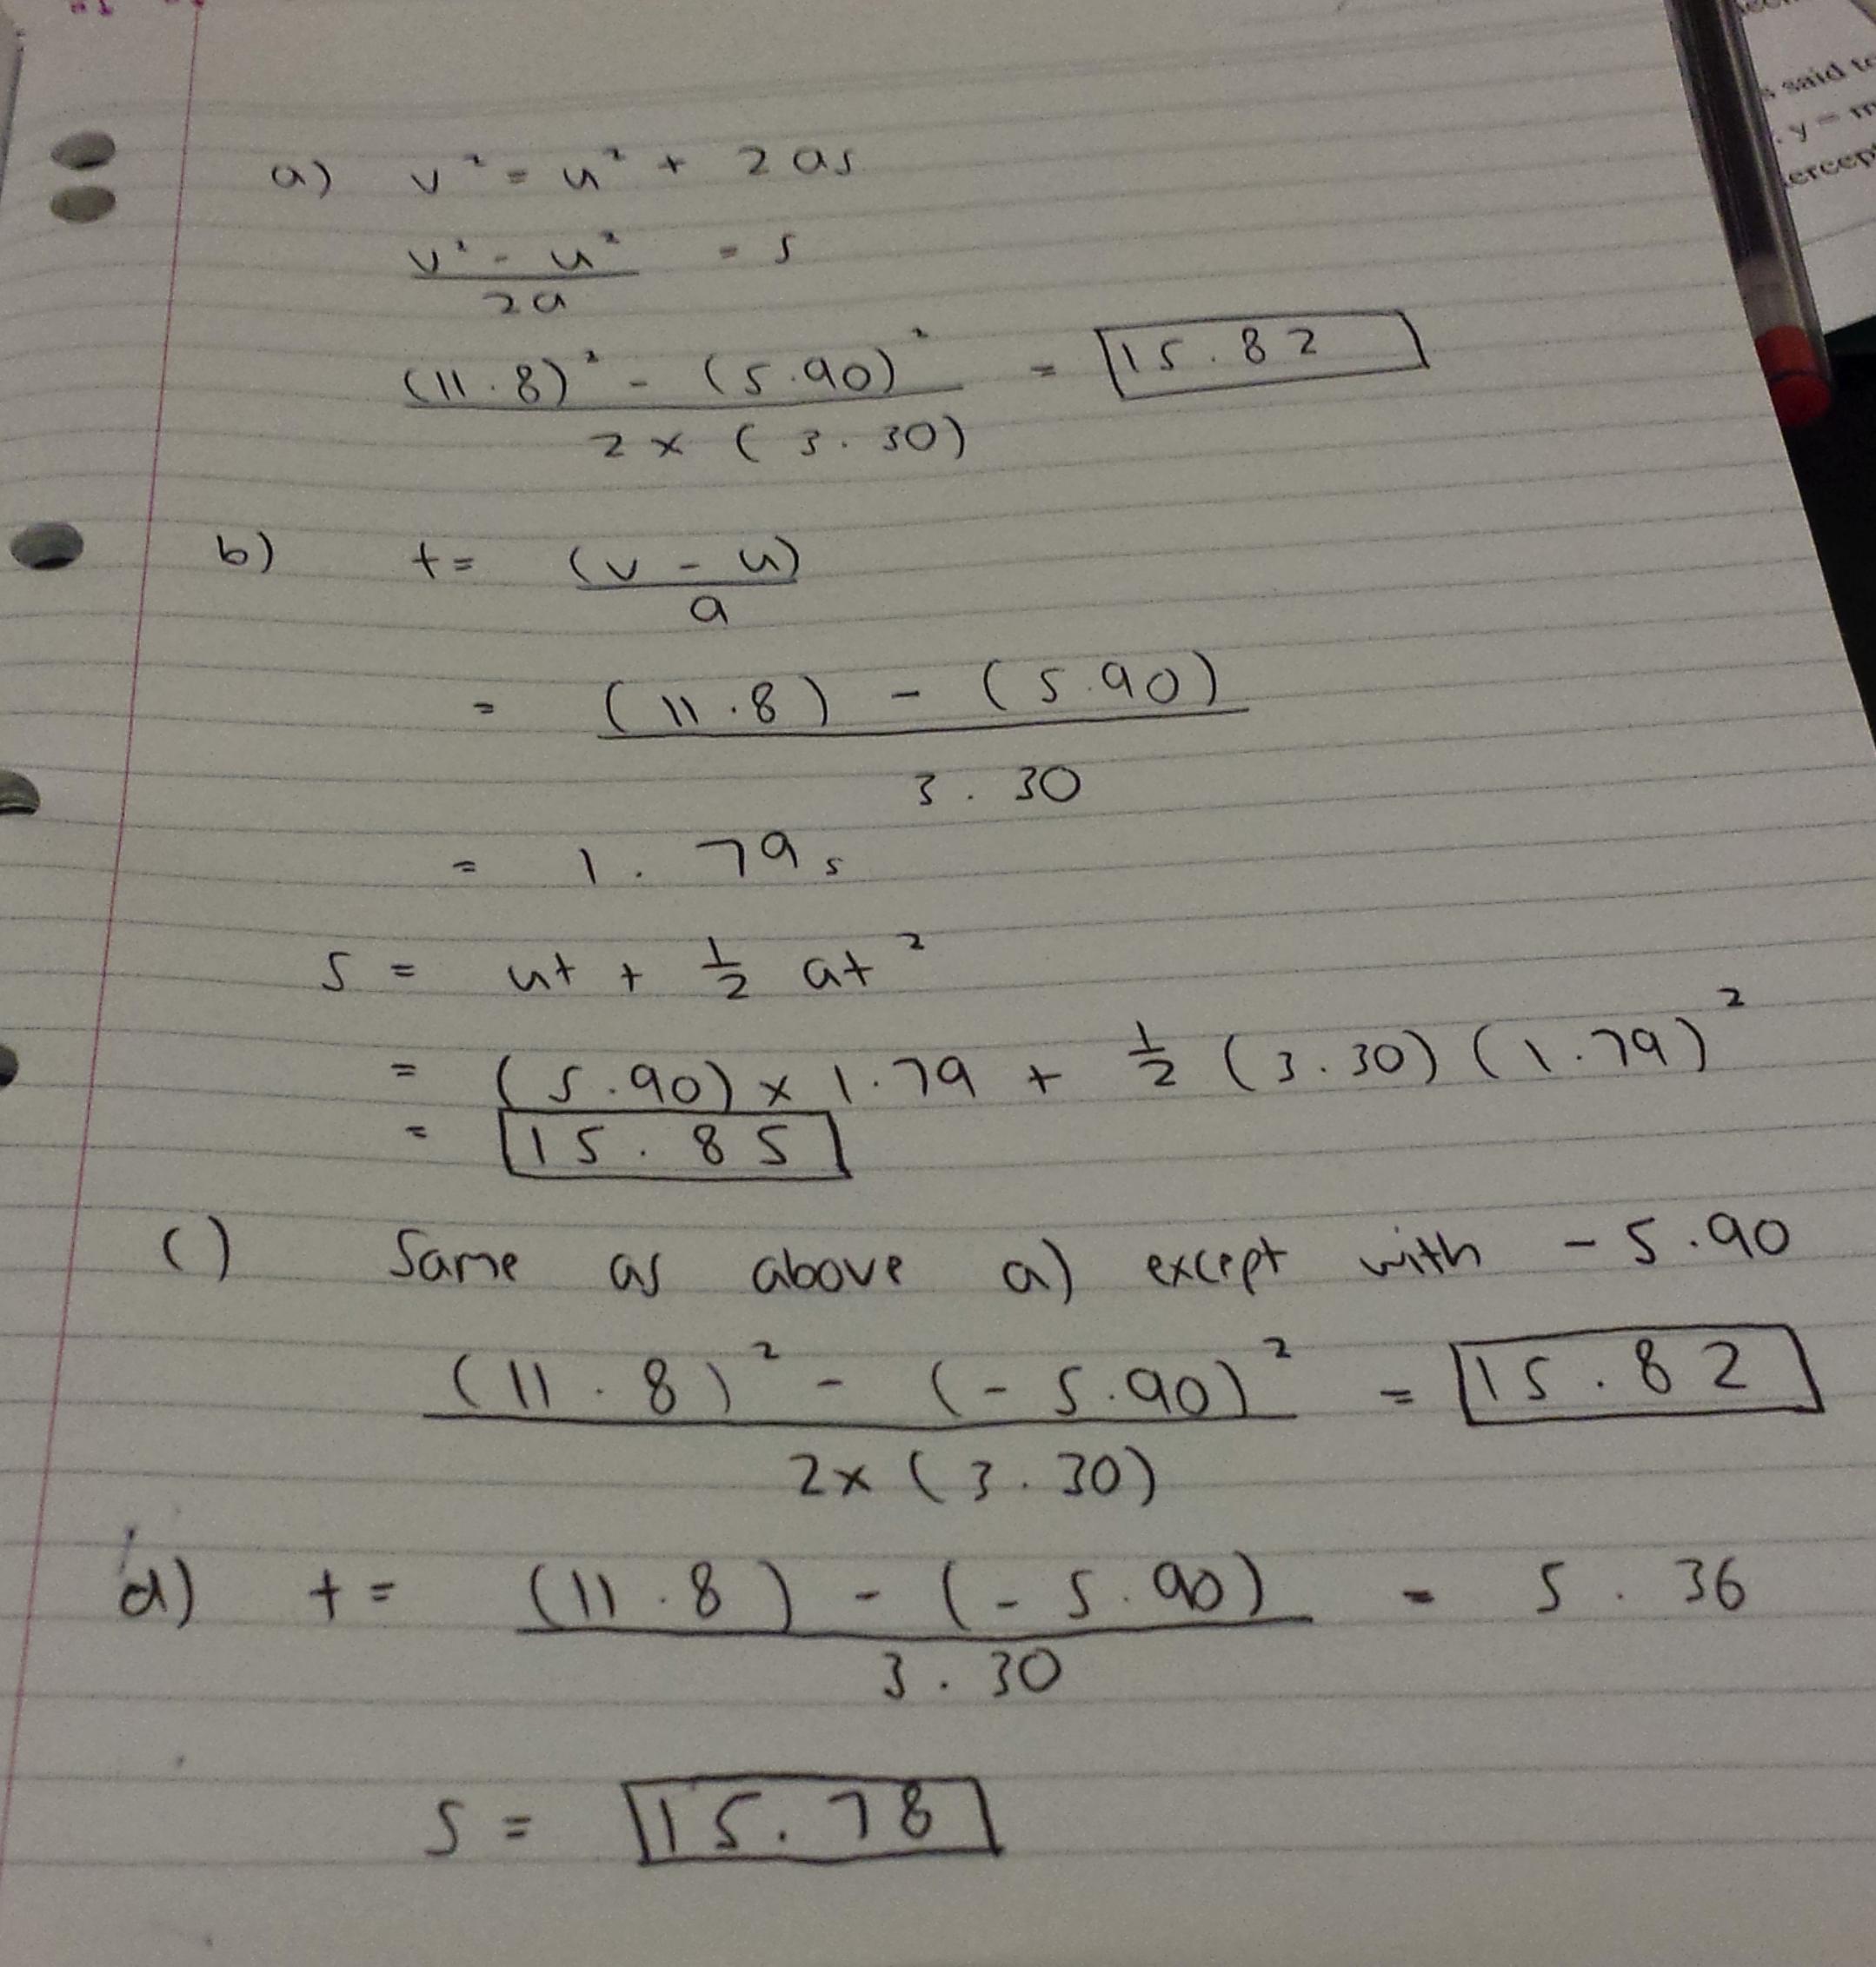 a) v² = u² + 2as
v² - u² / 2a = s
(11.8)² - (5.90)² / 2 × (3.30) = 15.82
b) t = (v - u) / a
= (11.8) - (5.90) / 3.30
= 1.79s
s = ut + ½ at²
= (5.90) × 1.79 + ½ (3.30) (1.79)²
= 15.85
c) Same as above a) except with -5.90
(11.8)² - (-5.90)² / 2× (3.30) = 15.82
d) t = (11.8) - (-5.90) / 3.30 = 5.36
s = 15.78
said to
y = m